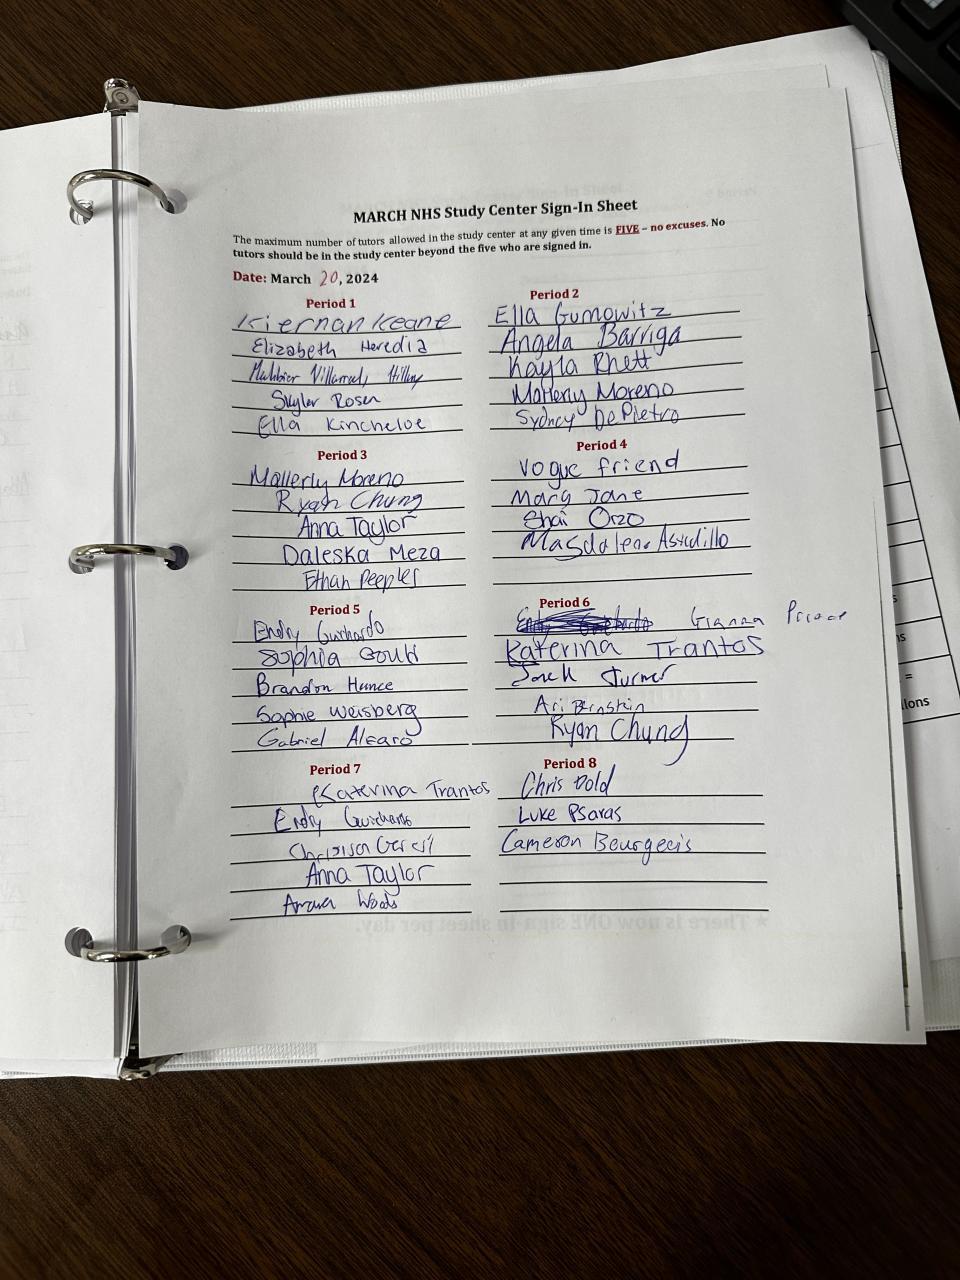 MARCH NHS Study Center Sign-In Sheet
The maximum number of tutors allowed in the study center at any given time is FIVE – no excuses. No
tutors should be in the study center beyond the five who are signed in.
Date: March 20, 2024
Period 1
Kiernan Keane
Elizabeth Heredia
Hillary
Skyler Rosen
Ella Kincheloe
Period 2
Ella Gumowitz
Angela Barriga
Kayla Rhett
Mallerly Moreno
Sydney DePietro
Period 3
Mallerly Moreno
Ryan Chung
Anna Taylor
Daleska Meza
Ethan Peeples
Period 4
Vogue friend
Mary Jane
Shai Orzo
Magdalena Astudillo
Period 5
Endry Guichardo
Sophia
Brandon Hance
Sophie Weisberg
Gabriel Alfaro
Period 6
Gianna
Katerina Trantos
Jack Turner
Ari Bernstein
Ryan Chung
Period 7
Katerina Trantos
Endry Guichardo
Anna Taylor
Woods
Period 8
Chris Dold
Luke Psaras
Cameron Bourgeois
★ There is now ONE sign-in sheet per day.
ns
=
lons